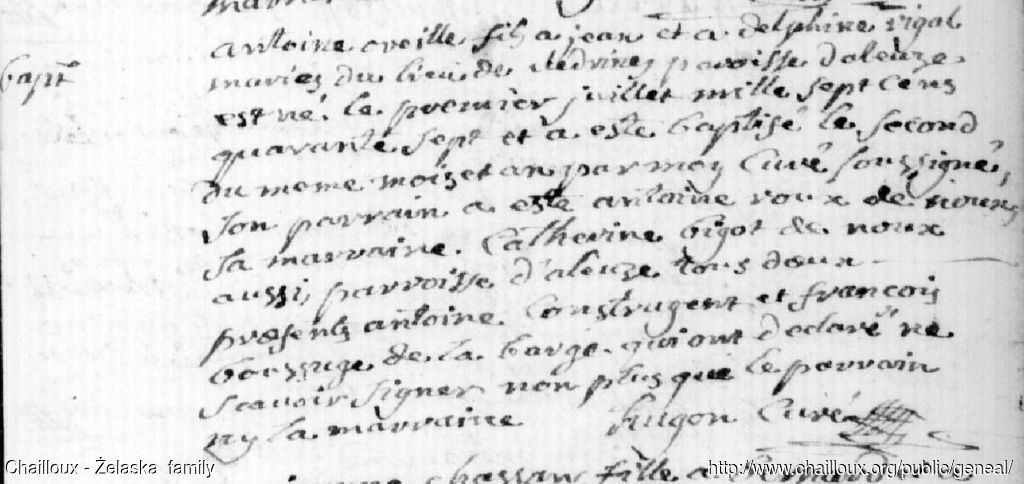 bapt
antoine oreille fils a jean et a delphine rigal
mariez du lieu de vedrines paroisse daleuze
est né le premier juillet mille sept cens
quarante sept et a este baptisé le second
du meme mois et an par moy curé soussigné,
son parrain a este antoine roux de
sa marraine Catherine bigot de noux
aussi parroisse d'aleuze tous deux
presents antoine Construgent et francois
boussuge de la barge qui ont declaré ne
scavoir signer non plus que le parrain
ny la marraine hugon Curé
chassan fille a
Chailloux - Żelaska family
http://www.chailloux.org/public/geneal/